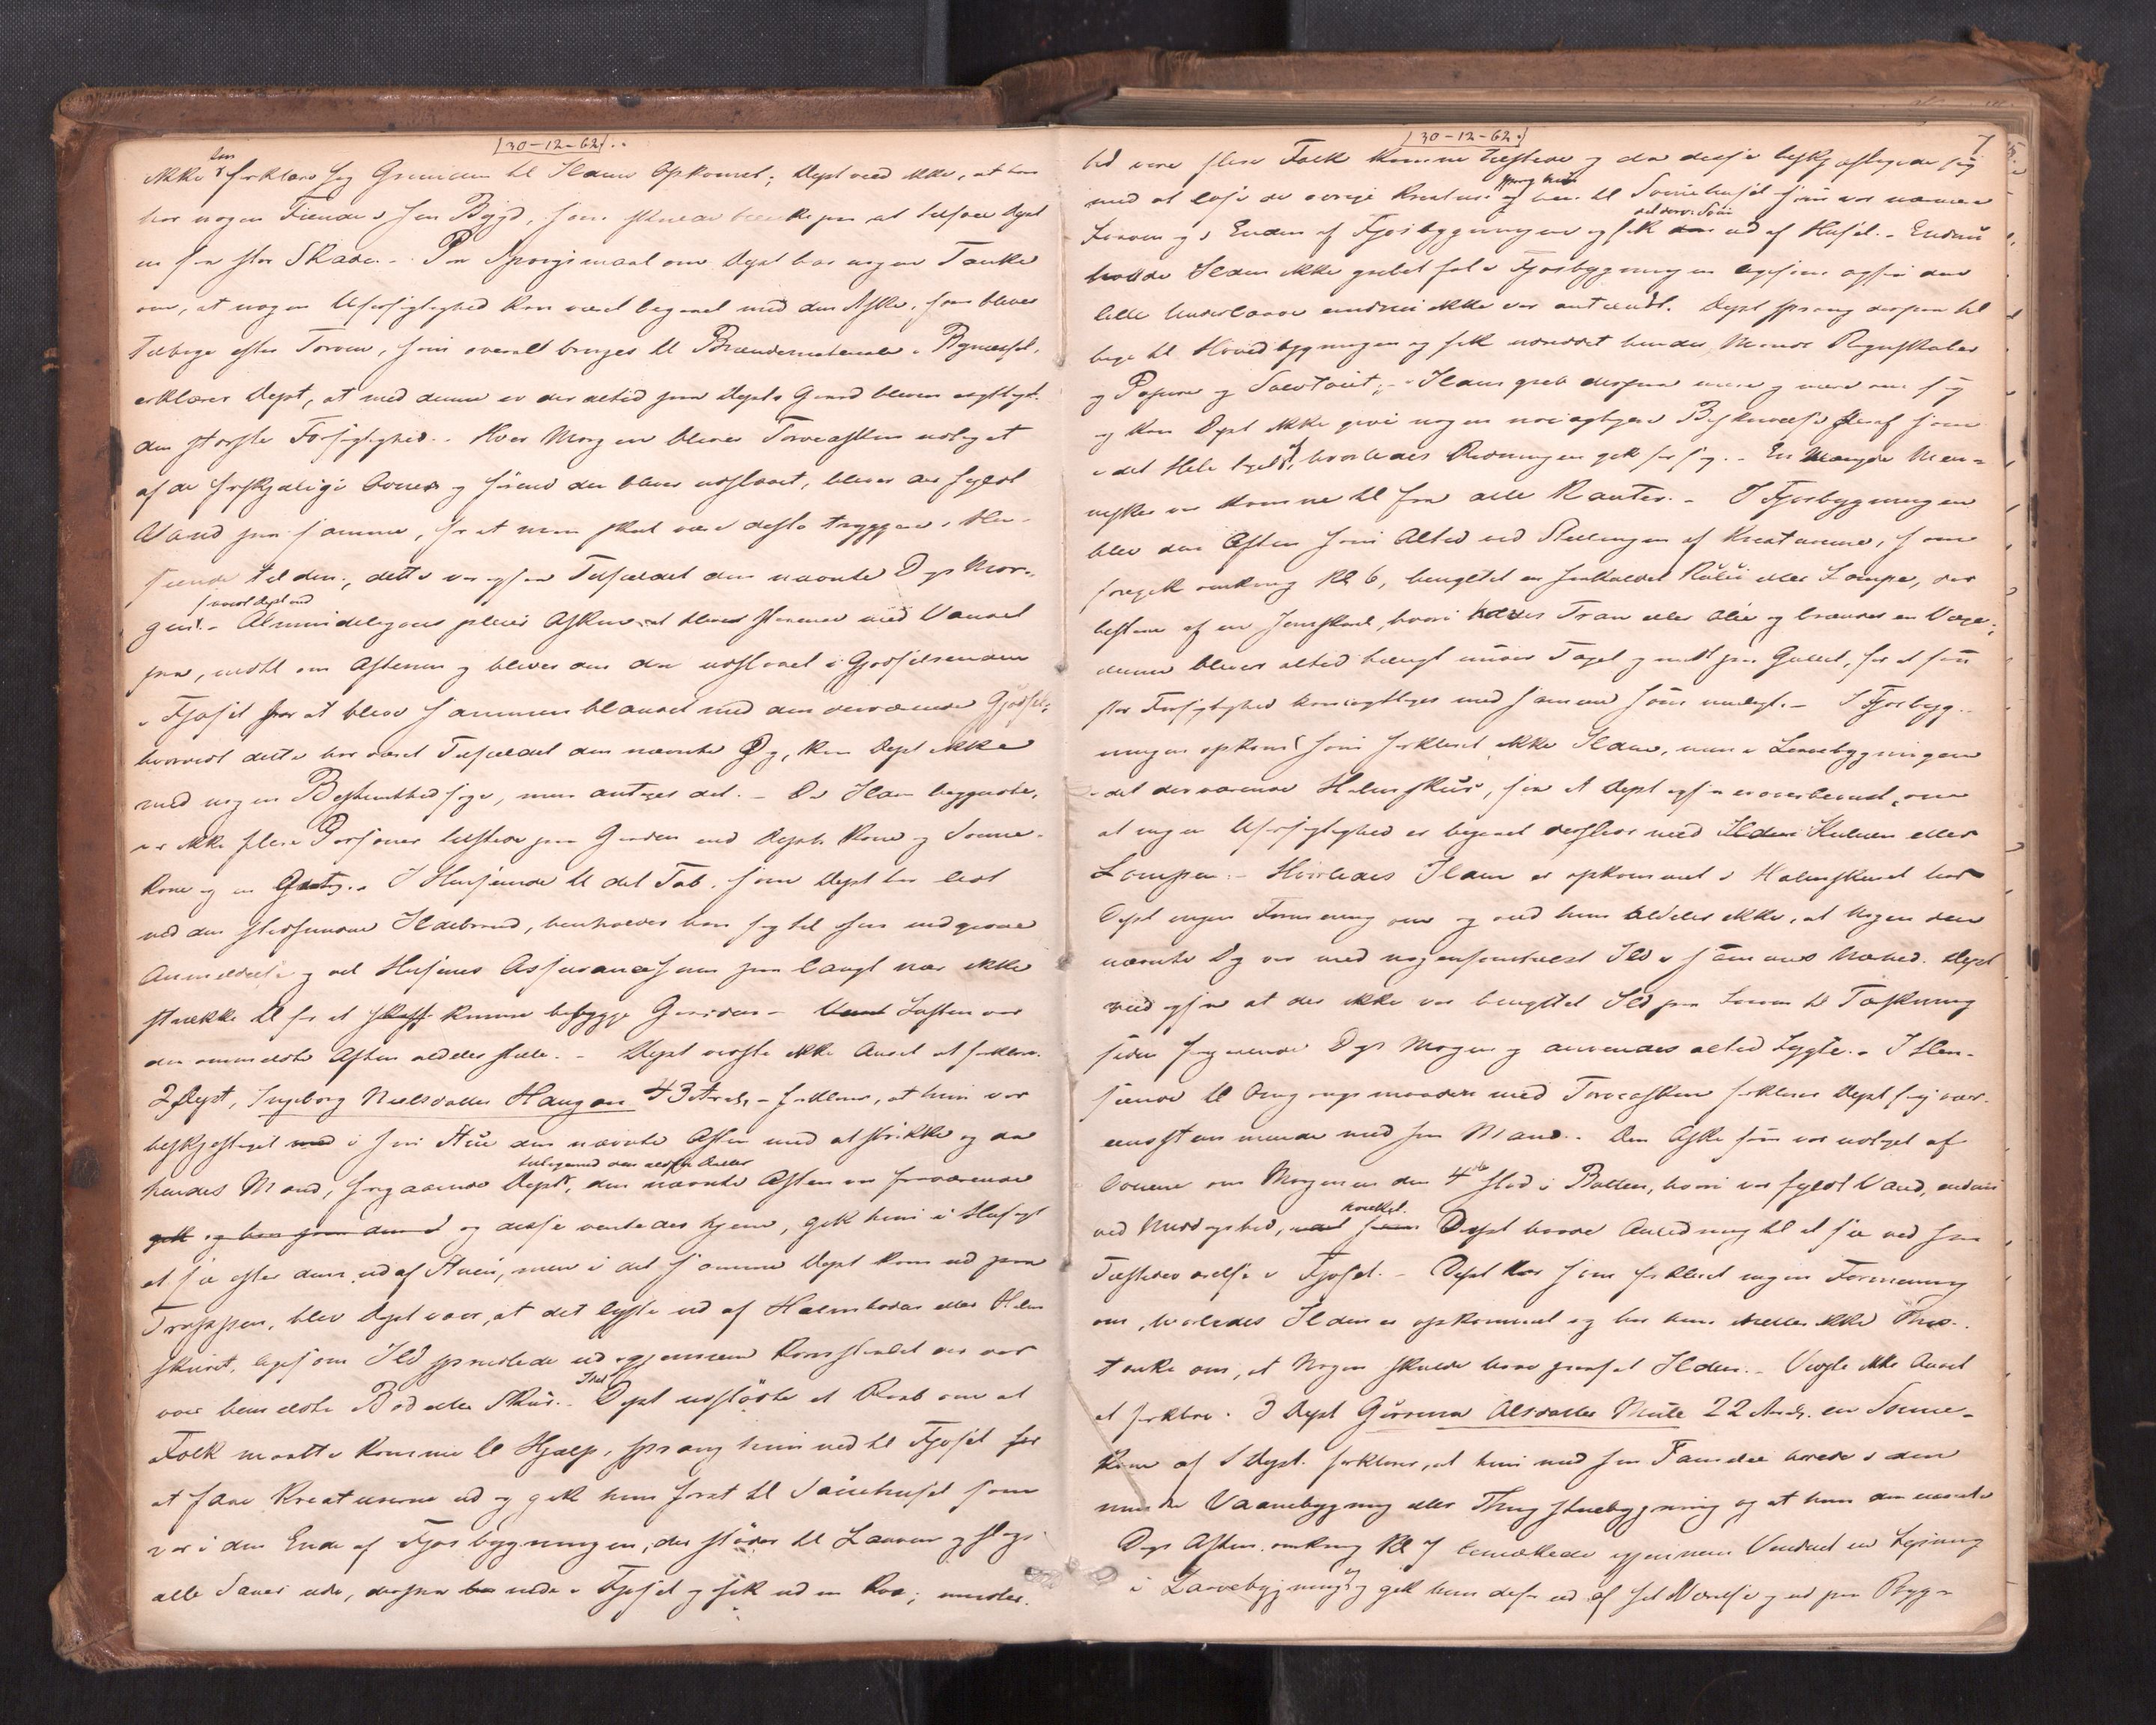 |30-12-62|.
ikke kan forklare sig Grunden til Ildens Opkomst; Dept veed ikke, at han
har nogen Fiende i sin Bygd, som skulde tænke paa at tilføie Dept
en saa stor Skade. - Paa Spørgsmaal om Dept har nogen Tanke
om, at nogen Uforsigtighed kan være begaaet med den Aske, som bliver
tilbage efter Torven, som overalt bruges til Brændemateriale i Bynæsset,
erklærer Dept, at med denne er der altid paa Depts Gaard bleven iagttaget
den største Forsigtighed. Hver Morgen bliver Torveasken udtaget
af de forskjellige Ovne og förend den bliver udslaaet, bliver der fyldt
Vand paa samme, for at man skal være desto tryggere i Hen-
seende til den; dette var ogsaa Tilfældet den nævnte Dags Mor-
saavidt Dept ved
gen. - Almindeligvis pleier Asken, at blive staaende med Vandet
paa, indtil om Aftenen og bliver den da udslaaet i Gjødselrenden
i Fjøset for at blive sammenblandet med den derværende Gjødsel;
hvorvidt dette har været Tilfældet den nævnte Dag, kan Dept ikke
med nogen Bestemthed sige, men antager det. - Da Ilden begyndte,
var ikke flere Personer tilstede paa Gaarden end Depts Kone og Sønne-
kone og en Gut. - I Henseende til det Tab, som Dept har lidt
ved den stedfundne Ildebrand, henholder han sig til sin indgivne
Anmeldelse og vil Husenes Assurancesum paa langt nær ikke
strække til for at kunne bebygge Gaarden. - Luften var
den ommeldte Aften aldeles stille. - Dept vidste ikke Andet at forklare.
2 Dept, Ingeborg Nielsdatter Haugan 43 Aar, - forklarer, at hun var
beskjæftiget i sin Stue den nævnte Aften med at strikke og da
tilligemed den ældste Datter
hendes Mand, foregaaende Dept, den nævnte Aften var fraværende
og disse ventedes hjem, gik hun i Husfyt
at se efter dem ud af Stuen, men i det samme Dept kom ud paa
Trappen, blev Dept vaer, at det lyste ud af Halmboden eller Halm
skuret, ligesom Ild sprudlede ud igjennem Kornstadet der var
over bemeldte Bod eller Skur. - Idet Dept udstødte et Raab om at
Folk maatte komme til Hjælp, sprang hun ned til Fjøset for
at faae Kreaturerne ud og gik hun først til Sauehuset som
var i den Ende af Fjøsbygningen, der støder til Laaven og slap
alle Sauer ude, derpaa ned i Fjøset og fik ud en Ko; imidler-
|30-12-62|
7
tid vare flere Folk komne tilstede og da disse beskjæftigede sig
med at løse de øvrige Kreature sprang hun hen til Sviinehuset som var nærmere
det derv. Sviin
Laaven og i Enden af Fjøsbygningen og fik ud af Huset. - Endnu
havde Ilden ikke grebet fat i Fjøsbygningen ligesom ogsaa den
lille Underlaave endnu ikke var antændt. Dept sprang derpaa til
bage til Hovedbygningen og fik reddet hendes Mands Regnskaber
og Papirer og Sølvtøiet; - Ilden greb derpaa mere og mere om sig
og kan Dept ikke give nogen nøiagtigere Beskrivelse heraf som
i det Hele taget, hvorledes Redningen gik for sig. - En Mængde Men-
nesker var komne til fra alle Kanter. - I Fjøsbygningen
blev den Aften som altid ved Stellingen af Kreaturene, som
foregik omkring Kl 6, benyttet en saakaldet Kolu eller Lampe, der
bestaar af en Jernskaal, hvori haves Tran eller Olie og brændes en Væge;
denne bliver altid hængt under Taget og midt paa Gulvet, for at saa
stor Forsigtighed kan iagttages med samme som muligt. - I Fjøsbyg-
ningen opkom som forklaret ikke Ilden, men i Laavebygningen
i det derværende Halmskur, saa at Dept ogsaa er overbevist om
at ingen Uforsigtighed er begaaet desfor med Kulluen eller
Lampen. - Hvorledes Ilden er opkommet i Halmskuret har
Dept ingen Formening om og ved hun aldeles ikke, at Nogen den
nævnte Dag var med nogensomhelst Ild i sammes Nærhed. Dept
veed ogsaa at der ikke var benyttet Ild paa Laaven til Tærskning
siden foregaaende Dags Morgen og anvendes altid Lygte. - I Hen-
seende til Omgangsmaaden med Torveasken forklarer Dept sig over-
eensstemmende med sin Mand. - Den Aske som var udtaget af
Ovnene om Morgenen den 4de stod i Bøtten, hvori var fyldt Vand, endnu
hvilket
ved Middagstid, Dept havde Anledning til at se ved sin
Tilstedeværelse i Fjøset. - Dept har som forklaret ingen Formening
om, hvorledes Ilden er opkommet og har hun heller ikke Mis-
tanke om, at Nogen skulde have paasat Ilden. - Vidste ikke Andet
at forklare. 3 Dept Gurina Olsdatter Mule 22 Aar. en Sønne-
kone af 1 Dept. forklarer, at hun med sin Familie boede i den
mindre Vaanebygning eller Thingstuebygning og at hun den nævnte
Dags Aften omkring Kl 7 bemærkede igjennem Vinduet en Lysning
i Laavebygningen og gik hun derfor ud af sit Værelse og ud paa Byg-